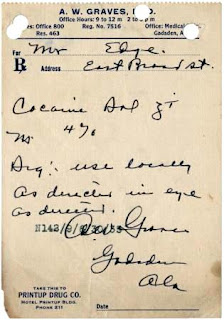 A. W. GRAVES, M. D.
Office Hours: 9 to 12 m 2 to
Phones: Office 800 Reg. No. 7516 Office: Medical
Res. 463 Gadsden, A
For Mr Edge
℞ Address East Broad st.
Cocaine Sol ʒi
4%
Sig: use locally
as directed in eye
as directed.
Graves
Gadsden
Ala
TAKE THIS TO
PRINTUP DRUG CO.
HOTEL PRINTUP BLDG.
PHONE 211
Date